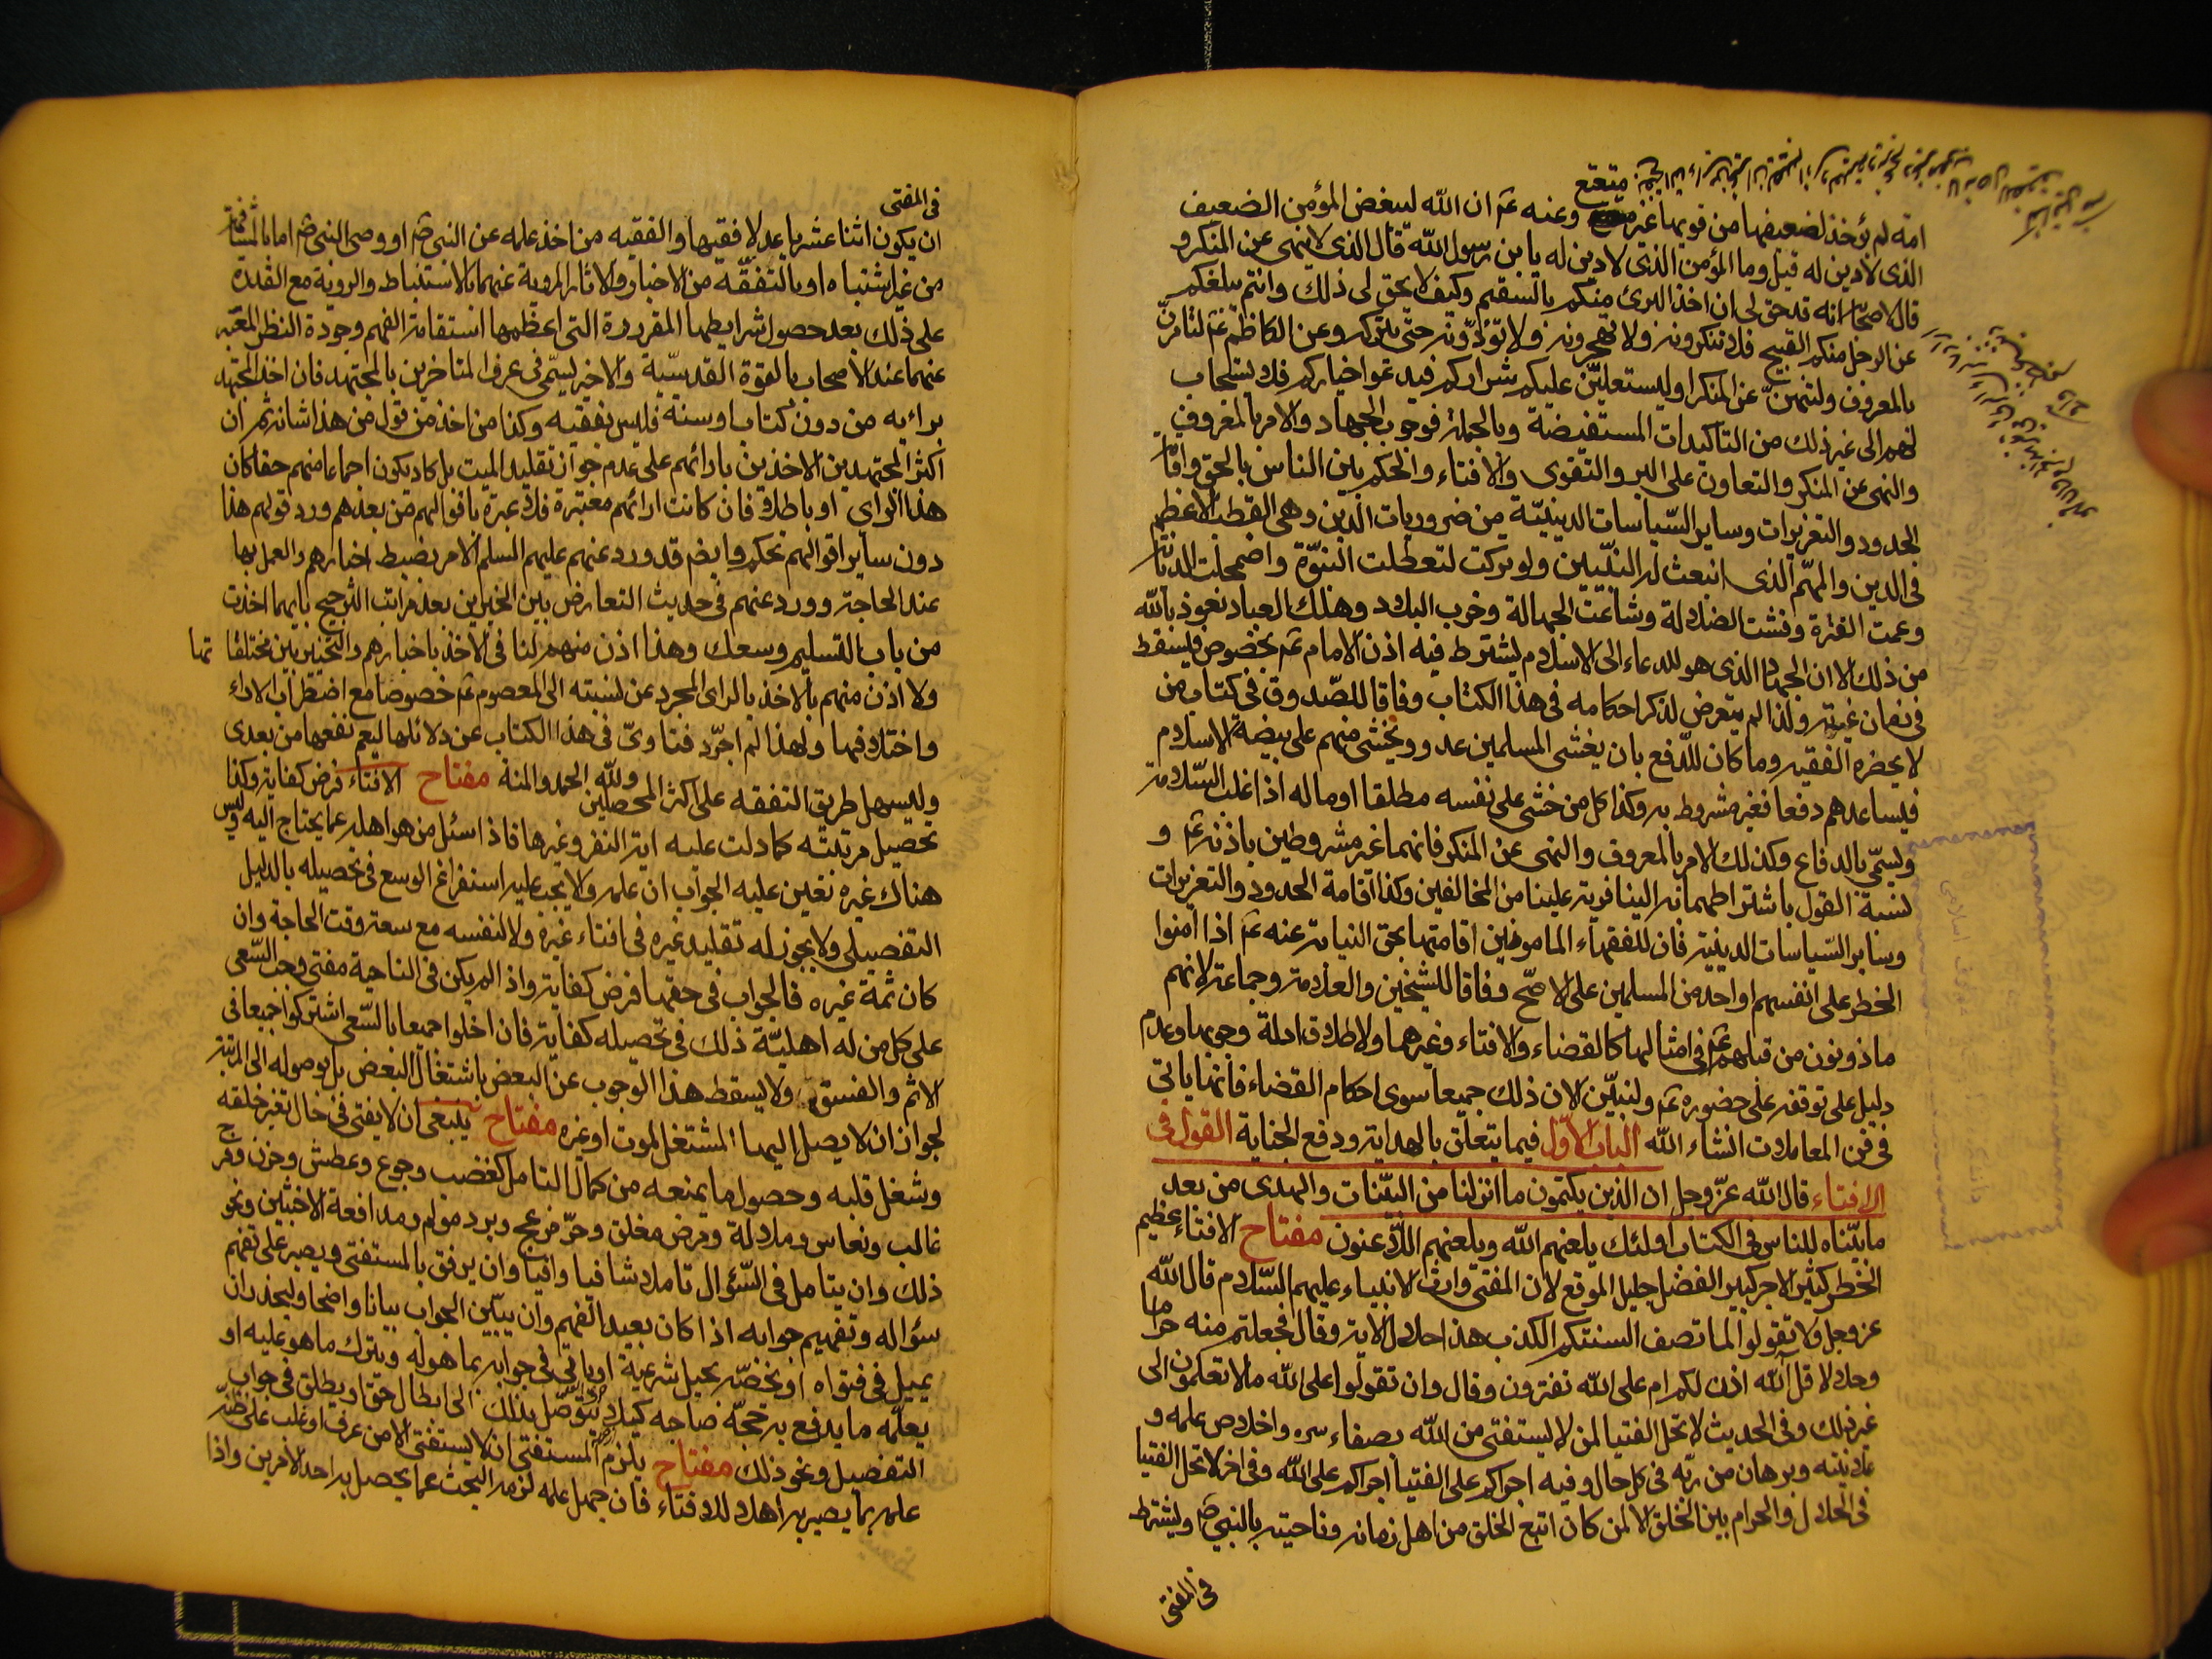 امة لم يؤخذ لضعيفها من قويها غير متعتع وعنه عم ان الله ليبغض المؤمن الضعيف
الذى لا دين له قيل وما المؤمن الذى لا دين له يا بن رسول الله قال الذى لا ينهى عن المنكر و
قال لاصحابه انه قد حق لى ان اخذ البرئ منكم بالسقيم وكيف لا يحق لى ذلك وانتم يبلغكم
عن الرجل منكم القبيح فلا تنكرونه ولا تهجرونه ولا تؤذونه حتى يتركه وعن الكاظم عم لتأمرن
بالمعروف ولتنهن عن المنكر او ليستعملن عليكم شراركم فيدعوا خياركم فلا يستجاب
لهم الى غير ذلك من التاكيدات المستفيضة وبالجملة فوجوب الجهاد والامر بالمعروف
والنهى عن المنكر والتعاون على البر والتقوى والافتاء والحكم بين الناس بالحق واقامة
الحدود والتعزيرات وساير السياسات الدينية من ضروريات الدين وهى القطب الاعظم
فى الدين والمهم الذى ابتعث له النبيين ولو تركت لتعطلت النبوة واضمحلت الديانة
وعمت الفترة وفشت الضلالة وشاعت الجهالة وخرب البلاد وهلك العباد نعوذ بالله
من ذلك الا ان الجهاد الذى هو للدعاء الى الاسلام يشترط فيه اذن الامام عم بخصوصه فيسقط
فى زمان غيبته ولذا لم يتعرض لذكر احكامه فى هذا الكتاب وفاقا للصدوق فى كتاب من
لا يحضره الفقيه وما كان للدفع بان يغشى المسلمين عدو ويخشى منهم على بيضة الاسلام
فيساعدهم دفعا فغير مشروط به وكذا كل من خشى على نفسه مطلقا او ماله اذا غلب السلامة
ويسمى بالدفاع وكذلك الامر بالمعروف والنهى عن المنكر فانهما غير مشروطين باذنه عم و
نسبة القول باشتراطهما به الينا فرية علينا من المخالفين وكذا اقامة الحدود والتعزيرات
وساير السياسات الدينية فان للفقهاء المامونين اقامتها بحق النيابة عنه عم اذا امنوا
الخطر على انفسهم او احد من المسلمين على الاصح وفاقا للشيخين والعلامة وجماعة لانهم
ماذونون من قبلهم عم فى امثالها كالقضاء والافتاء وغيرهما ولاطلاق ادلة وجوبها وعدم
دليل على توقفه على حضوره عم ولنبين الان ذلك جميعا سوى احكام القضاء فانها ياتى
فى فن المعاملات انشاء الله الباب الاول فيما يتعلق بالهداية ودفع الجناية القول فى
الافتاء قال الله عز وجل ان الذين يكتمون ما انزلنا من البينات والهدى من بعد
ما بيناه للناس فى الكتاب اولئك يلعنهم الله ويلعنهم اللاعنون مفتاح الافتاء عظيم
الخطر كثير الاجر كبير الفضل جليل الموقع لان المفتى وارث الانبياء عليهم السلام قال الله
عز وجل ولا تقولوا لما تصف السنتكم الكذب هذا حلال الاية وقال فجعلتم منه حراما
وحلالا قل آلله اذن لكم ام على الله تفترون وقال وان تقولوا على الله ما لا تعلمون الى
غير ذلك وفى الحديث لا تحل الفتيا لمن لا يستفتى من الله بصفاء سره واخلاص علمه و
علانيته وبرهان من ربه فى كل حال وفيه اجراكم على الفتيا اجراكم على الله وفى اخر لا تحل الفتيا
فى الحلال والحرام بين الخلق الا لمن كان اتبع الخلق من اهل زمانه وناحيته بالنبى ص ويشترط
فى المفتى
فى المفتى
ان يكون اثنا عشريا عدلا فقيها والفقيه من اخذ علمه عن النبى ص او وصى النبى ص اما بالمشافهة
من غير اشتباه او بالتفقه من الاخبار والاثار المروية عنهما بالاستنباط والروية مع القدرة
على ذلك بعد حصول شرايطها المقررة التى اعظمها استقامة الفهم وجودة النظر المعبر
عنهما عند الاصحاب بالقوة القدسية والاخير يسمى فى عرف المتاخرين بالمجتهد فان اخذ المجتهد
برائه من دون كتاب او سنة فليس بفقيه وكذا من اخذ من قول من هذا شانه ثم ان
اكثر المجتهدين الاخذين بارائهم على عدم جواز تقليد الميت بل كاد يكون اجماعا منهم حقا كان
هذا الراى او باطلا فان كانت ارائهم معتبرة فلا عبرة باقوالهم من بعدهم ورد قولهم هذا
دون ساير اقوالهم تحكم وايضم قد ورد عنهم عليهم السلم الامر بضبط اخبارهم والعمل بها
عند الحاجة وورد عنهم فى حديث التعارض بين الخبرين بعد مراتب الترجيح بايهما اخذت
من باب التسليم وسعك وهذا اذن منهم لنا فى الاخذ باخبارهم والتخير بين مختلفاتها
ولا اذن منهم بالاخذ بالراى المجرد عن نسبته الى المعصوم عم خصوصا مع اضطراب الاراء
واختلافها ولهذا لم اجرد فتاوىّ فى هذا الكتاب عن دلائلها ليعم نفعها من بعدى
وليسهل طريق التفقه على اكثر المحصلين ولله الحمد والمنة مفتاح الافتاء فرض كفاية وكذا
تحصيل مرتبته كما دلت عليه اية النفر وغيرها فاذا سئل من هو اهله عما يحتاج اليه وليس
هناك غيره تعين عليه الجواب ان علمه ولا يجب عليه استفراغ الوسع فى تحصيله بالدليل
التفصيلى ولا يجوز له تقليد غيره فى افتاء غيره ولا لنفسه مع سعة وقت الحاجة وان
كان ثمة غيره فالجواب فى حقهما فرض كفاية واذا لم يكن فى الناحية مفتى وجب السعى
على كل من له اهلية ذلك فى تحصيله كفاية فان اخلوا جميعا بالسعى اشتركوا جميعا فى
الاثم والفسق ولا يسقط هذا الوجوب عن البعض باشتغال البعض بل بوصوله الى المرتبة
لجواز ان لا يصل اليها المشتغل لموت او غيره مفتاح ينبغى ان لا يفتى فى حال تغير خلقه
وشغل قلبه وحصول ما يمنعه من كمال التامل كغضب وجوع وعطش وحزن وفرح
غالب ونعاس وملالة ومرض مغلق وحر مزعج وبرد مولم ومدافعة الاخبثين ونحو
ذلك وان يتامل فى السؤال تاملا شافيا وافيا وان يرفق بالمستفتى ويصبر على تفهم
سؤاله وتفهيم جوابه اذا كان بعيد الفهم وان يبين الجواب بيانا واضحا وليحذر ان
يميل فى فتواه او تخصه بحيل شرعية او ياتى فى جوابه بما هو له ويترك ما هو عليه او
يعلمه ما يدفع به حجة صاحبه كيلا يتوصل بذلك الى ابطال حق او يطلق فى جواب
التفصيل ونحو ذلك مفتاح يلزم المستفتى ان لا يستفتى الا من عرف او غلب على ظنه
علمه بما يصير به اهلا للافتاء فان جهل علمه لزمه البحث عما يحصل به احد الامرين واذا